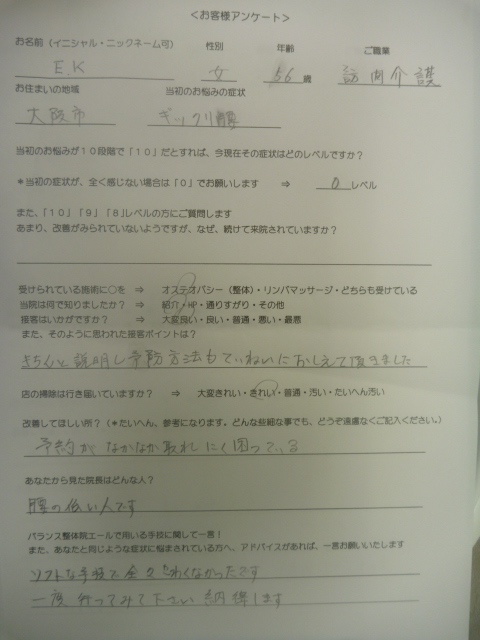 <お客様アンケート>
お名前(イニシャル・ニックネーム可) 性別 年齢 ご職業
E K 女 56 歳 訪問介護
お住まいの地域 当初のお悩みの症状
大阪市 ギックリ腰
当初のお悩みが10段階で「10」だとすれば、今現在その症状はどのレベルですか?
*当初の症状が、全く感じない場合は「0」でお願いします ⇒ 0 レベル
また、「10」「9」「8」レベルの方にご質問します
あまり、改善がみられていないようですが、なぜ、続けて来院されていますか?
受けられている施術に○を ⇒ オステオパシー(整体)・リンパマッサージ・どちらも受けている
当院は何で知りましたか? ⇒ 紹介・HP・通りすがり・その他
接客はいかがですか? ⇒ 大変良い・良い・普通・悪い・最悪
また、そのように思われた接客ポイントは?
きちんと説明し予防方法もていねいにおしえて頂きました
店の掃除は行き届いていますか? ⇒ 大変きれい・きれい・普通・汚い・たいへん汚い
改善してほしい所?(*たいへん、参考になります。どんな些細な事でも、どうぞ遠慮なくご記入ください。)
予約がなかなか取れにく困っている
あなたから見た院長はどんな人?
腰の低い人です
バランス整体院エールで用いる手技に関して一言!
また、あなたと同じような症状に悩まされている方へ、アドバイスがあれば、一言お願いいたします
ソフトな手技で全々こわくなかったです
一度行ってみて下さい納得します